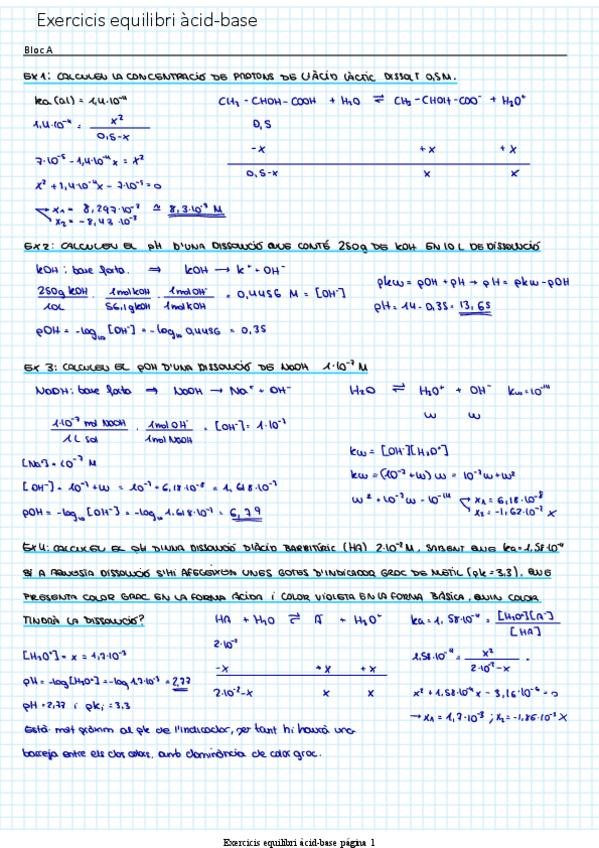 Exercicis equilibri àcid-base
Bloc A
EX 1: CALCULEU LA CONCENTRACIÓ DE PROTONS DE L'ÀCID LÀCTIC DISSOLT 0,5M.
ka (al) = 1,4·10⁻⁴ CH₃ - CHOH - COOH + H₂O ⇌ CH₃ - CHOH - COO⁻ + H₃O⁺
1,4·10⁻⁴ = x² / 0,5-x 0,5
-x +x +x
7·10⁻⁵ - 1,4·10⁻⁴x = x²
0,5-x x x
x² + 1,4·10⁻⁴x - 7·10⁻⁵ = 0
x₁ = 8,297·10⁻³ ≃ 8,3·10⁻³ M
x₂ = -8,43·10⁻³
EX 2: CALCULEU EL pH D'UNA DISSOLUCIÓ QUE CONTÉ 250g DE KOH EN 10 L DE DISSOLUCIÓ
KOH: base forta. ⇒ KOH → K⁺ + OH⁻
250g KOH / 10L · 1mol KOH / 56,1g KOH · 1mol OH⁻ / 1mol KOH = 0,4456 M = [OH⁻]
pkw = pOH + pH → pH = pkw - pOH
pH = 14 - 0,35 = 13,65
pOH = -log₁₀ [OH⁻] = -log₁₀ 0,4456 = 0,35
EX 3: CALCULEU EL pOH D'UNA DISSOLUCIÓ DE NaOH 1·10⁻⁷ M
NaOH: base forta ⇒ NaOH → Na⁺ + OH⁻ H₂O ⇌ H₃O⁺ + OH⁻ kw = 10⁻¹⁴
w w
1·10⁻⁷ mol NaOH / 1 L sol · 1mol OH⁻ / 1mol NaOH = [OH⁻] = 1·10⁻⁷
kw = [OH⁻][H₃O⁺]
[Na⁺] = 10⁻⁷ M
kw = (10⁻⁷ + w) w = 10⁻⁷w + w²
[OH⁻] = 10⁻⁷ + w = 10⁻⁷ + 6,18·10⁻⁸ = 1,618·10⁻⁷
w² + 10⁻⁷w - 10⁻¹⁴ x₁ = 6,18·10⁻⁸
x₂ = -1,62·10⁻⁷ X
pOH = -log₁₀ [OH⁻] = -log₁₀ 1,618·10⁻⁷ = 6,79
EX 4: CALCULEU EL pH D'UNA DISSOLUCIÓ D'ÀCID BARBITÚRIC (HA) 2·10⁻² M, SABENT QUE ka = 1,58·10⁻⁴
SI A AQUESTA DISSOLUCIÓ S'HI AFEGEIXEN UNES GOTES D'INDICADOR GROC DE METIL (pk = 3,3), QUE
PRESENTA COLOR GROC EN LA FORMA ÀCIDA I COLOR VIOLETA EN LA FORMA BÀSICA, QUIN COLOR
TINDRÀ LA DISSOLUCIÓ? HA + H₂O ⇌ A⁻ + H₃O⁺ ka = 1,58·10⁻⁴ = [H₃O⁺][A⁻] / [HA]
2·10⁻²
[H₃O⁺] = x = 1,7·10⁻³ 1,58·10⁻⁴ = x² / 2·10⁻²-x
-x +x +x
pH = -log[H₃O⁺] = -log 1,7·10⁻³ = 2,77 2·10⁻²-x x x x² + 1,58·10⁻⁴x - 3,16·10⁻⁶ = 0
pH = 2,77 i pki = 3,3 → x₁ = 1,7·10⁻³; x₂ = -1,86·10⁻³ X
Està molt pròxim al pk de l'indicador, per tant hi haurà una
barreja entre els dos colors, amb dominància de color groc.
Exercicis equilibri àcid-base página 1